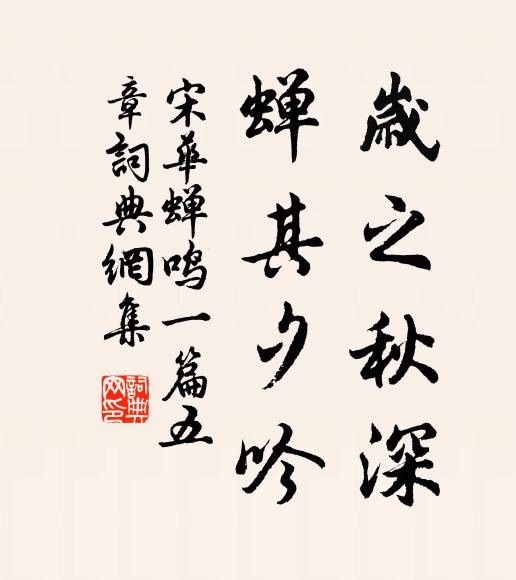 歲之秋深
蝉其夕吟
宋華蝉鸣一篇五
章詞典網集
詞典
网印